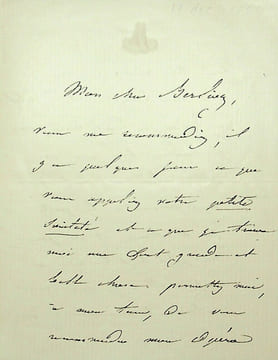 Mon cher Berlioz,
vous me recommandiez, il
y a quelques jours ce que
vous appeliez votre petite
Société et ce que je trouve
moi une fort grande et
belle chose permettez moi,
à mon tour, de vous
recommander mon Opéra